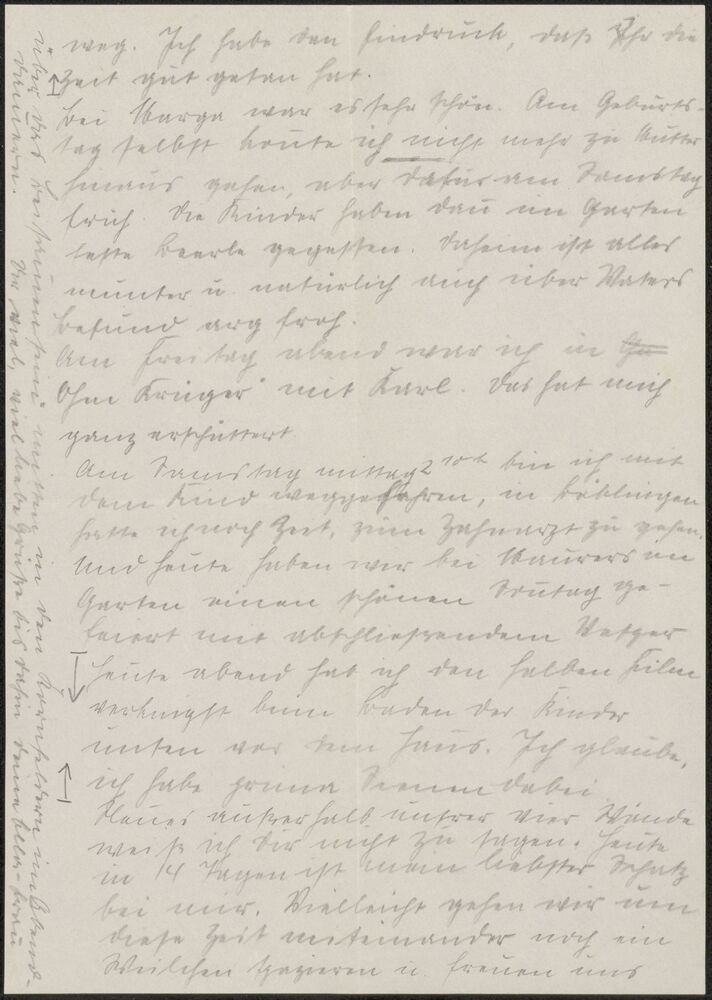 weg. Ich habe den Eindruck, daß Ihr die
Zeit gut getan hat.
Bei Marga war es sehr schön. Am Geburts-
tag selbst konnte ich nicht mehr zu Mutter
hinaus gehen, aber dafür am Samstag
früh. Die Kinder haben dau im Garten
Beerle gegessen. Daheim ist alles
munter u. natürlich auch über Vaters
Befund arg froh.
Am Freitag abend war ich in
Ohm Krüger" mit Karl. Das hat mich
ganz erschüttert
Am Samstag mittag 2 bin ich mit
dem Kind weggefahren, in Böblingen
hatte ich noch Zeit, zum Zahnarzt zu gehen.
Und heute haben wir bei Maurers im
Garten einen schönen Sonntag ge-
feiert mit abschliessendem Vesper
Heute abend hab ich den halben Film
verknipst beim Baden der Kinder
unten vor dem Haus. Ich glaube,
ich habe prima Scenen dabei
Neues ausserhalb unsrer vier Wände
weiß ich Dir nicht zu sagen. Heute
in 14 Tagen ist mein liebster Schatz
bei mir. Vielleicht gehen wir um
diese Zeit miteinander noch ein
Weilchen spazieren u. freuen uns
über das mitten in den Kornfeldern im Abend-
Dir viel, viel liebe Grüße bis dahin deine Frau